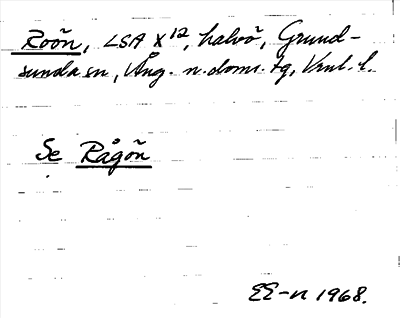 Roön, LSA X¹², halvö, Grund-
sunda sn, Ång. n. doms. tg, Vnl. l.
Se Rågön
EE-n 1968.